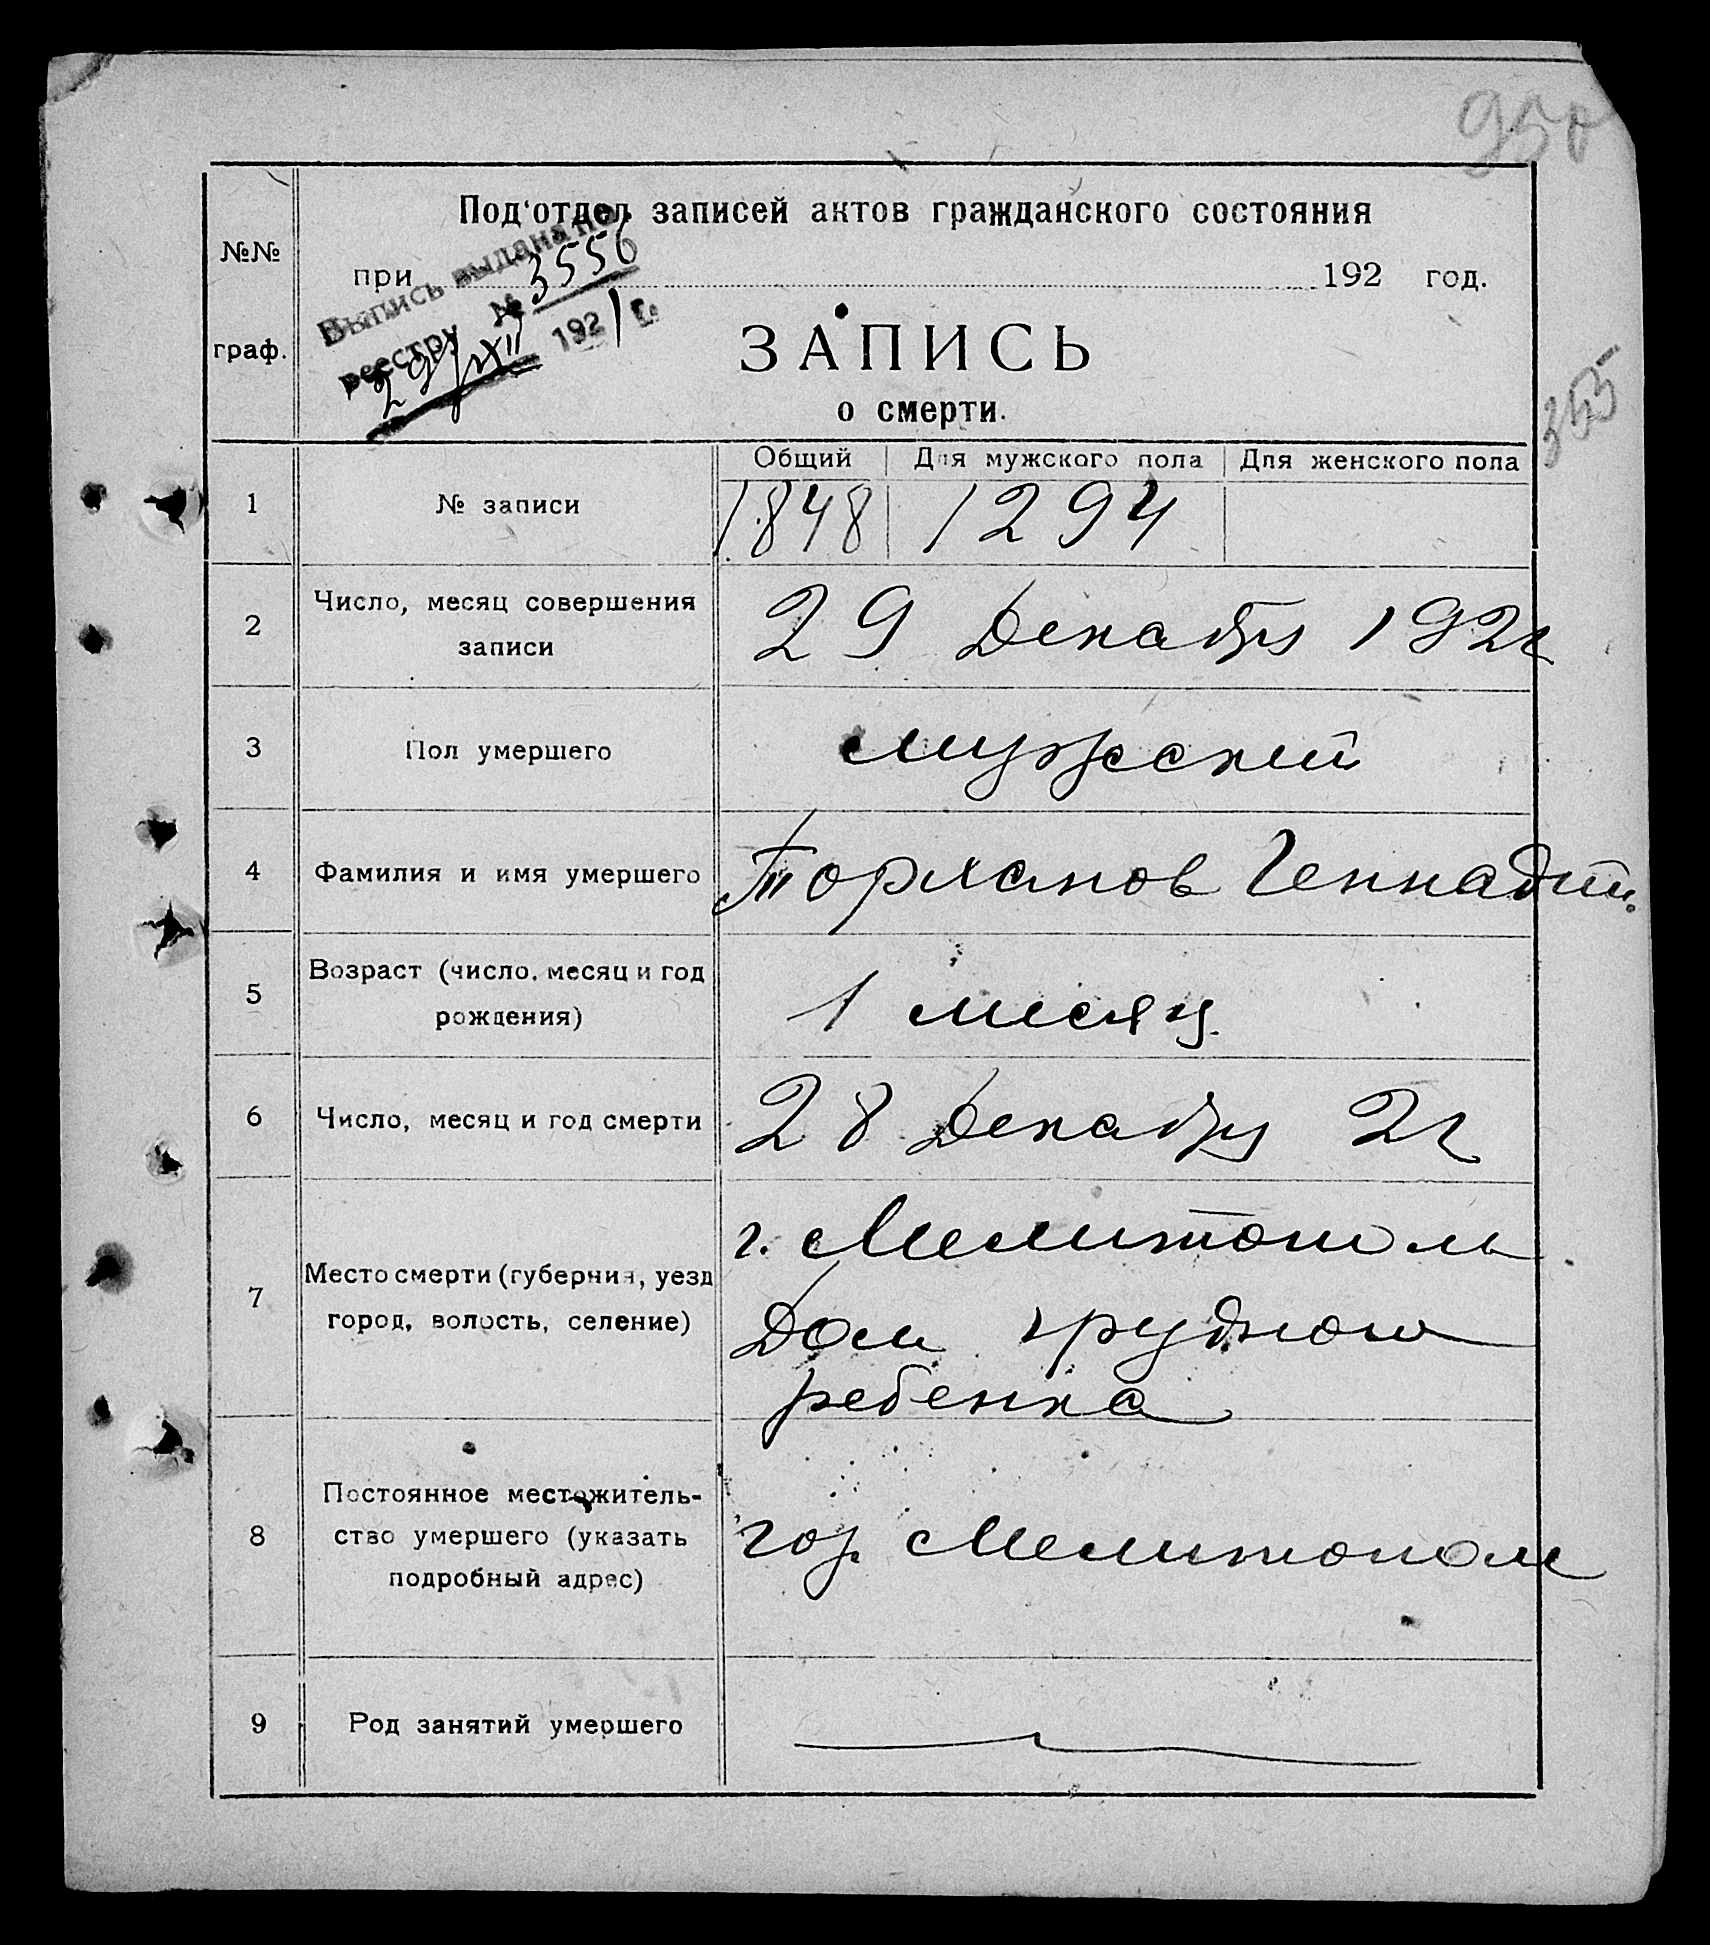 950
Под'отдел записей актов гражданского состояния
№№ граф.
при 192 год.
Выпись выдана по
реестру № 3556
29/XII 1921 г.
ЗАПИСЬ
о смерти.
355
Общий Для мужского пола Для женского пола
1 № записи 1848 1294
2 Число, месяц совершения
записи
29 Декабря 1921
3 Пол умершего мужской
4 Фамилия и имя умершего Торханов Геннадий.
5 Возраст (число, месяц и год
рождения)
1 месяц.
6 Число, месяц и год смерти 28 Декабря 21
7 Место смерти (губерния, уезд
город, волость, селение)
г. Мелитополь
Дом грудного
ребенка
8 Постоянное местожитель-
ство умершего (указать
подробный адрес)
гор. Мелитополь
9 Род занятий умершего